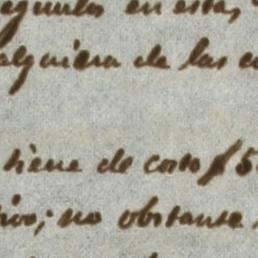 en esta,
alguiera de las
tiene de costo $ 5
no obstante